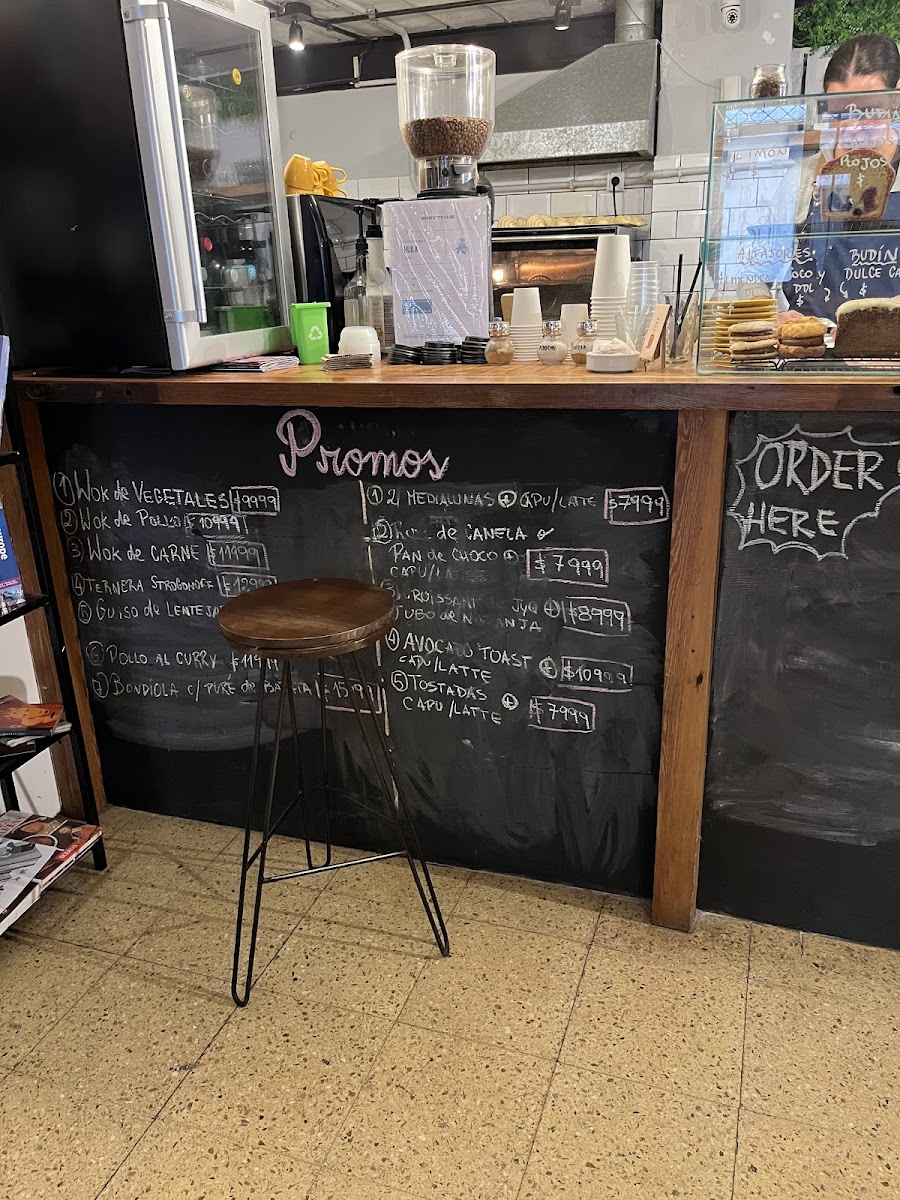 BUDÍN
LIMÓN
$
ROJOS
$
ALFAJORES:
COCO y
DDL
$
BUDÍN
DULCE
$
HUILA
Promos
① WOK de VEGETALES $9999
② WOK de POLLO $10999
③ WOK de CARNE $11999
④ TERNERA STROGONOFF
⑤ GUISO de
⑥ POLLO AL CURRY
⑦ BONDIOLA c/ PURÉ de
① 2 MEDIALUNAS + CAPU/LATTE $7999
② de CANELA o
PAN de CHOCO + $7999
CAPU/
JYQ + $8999
JUGO de
④ AVOCADO TOAST
CAPU/LATTE + $10999
⑤ TOSTADAS
CAPU/LATTE + $7999
ORDER
HERE